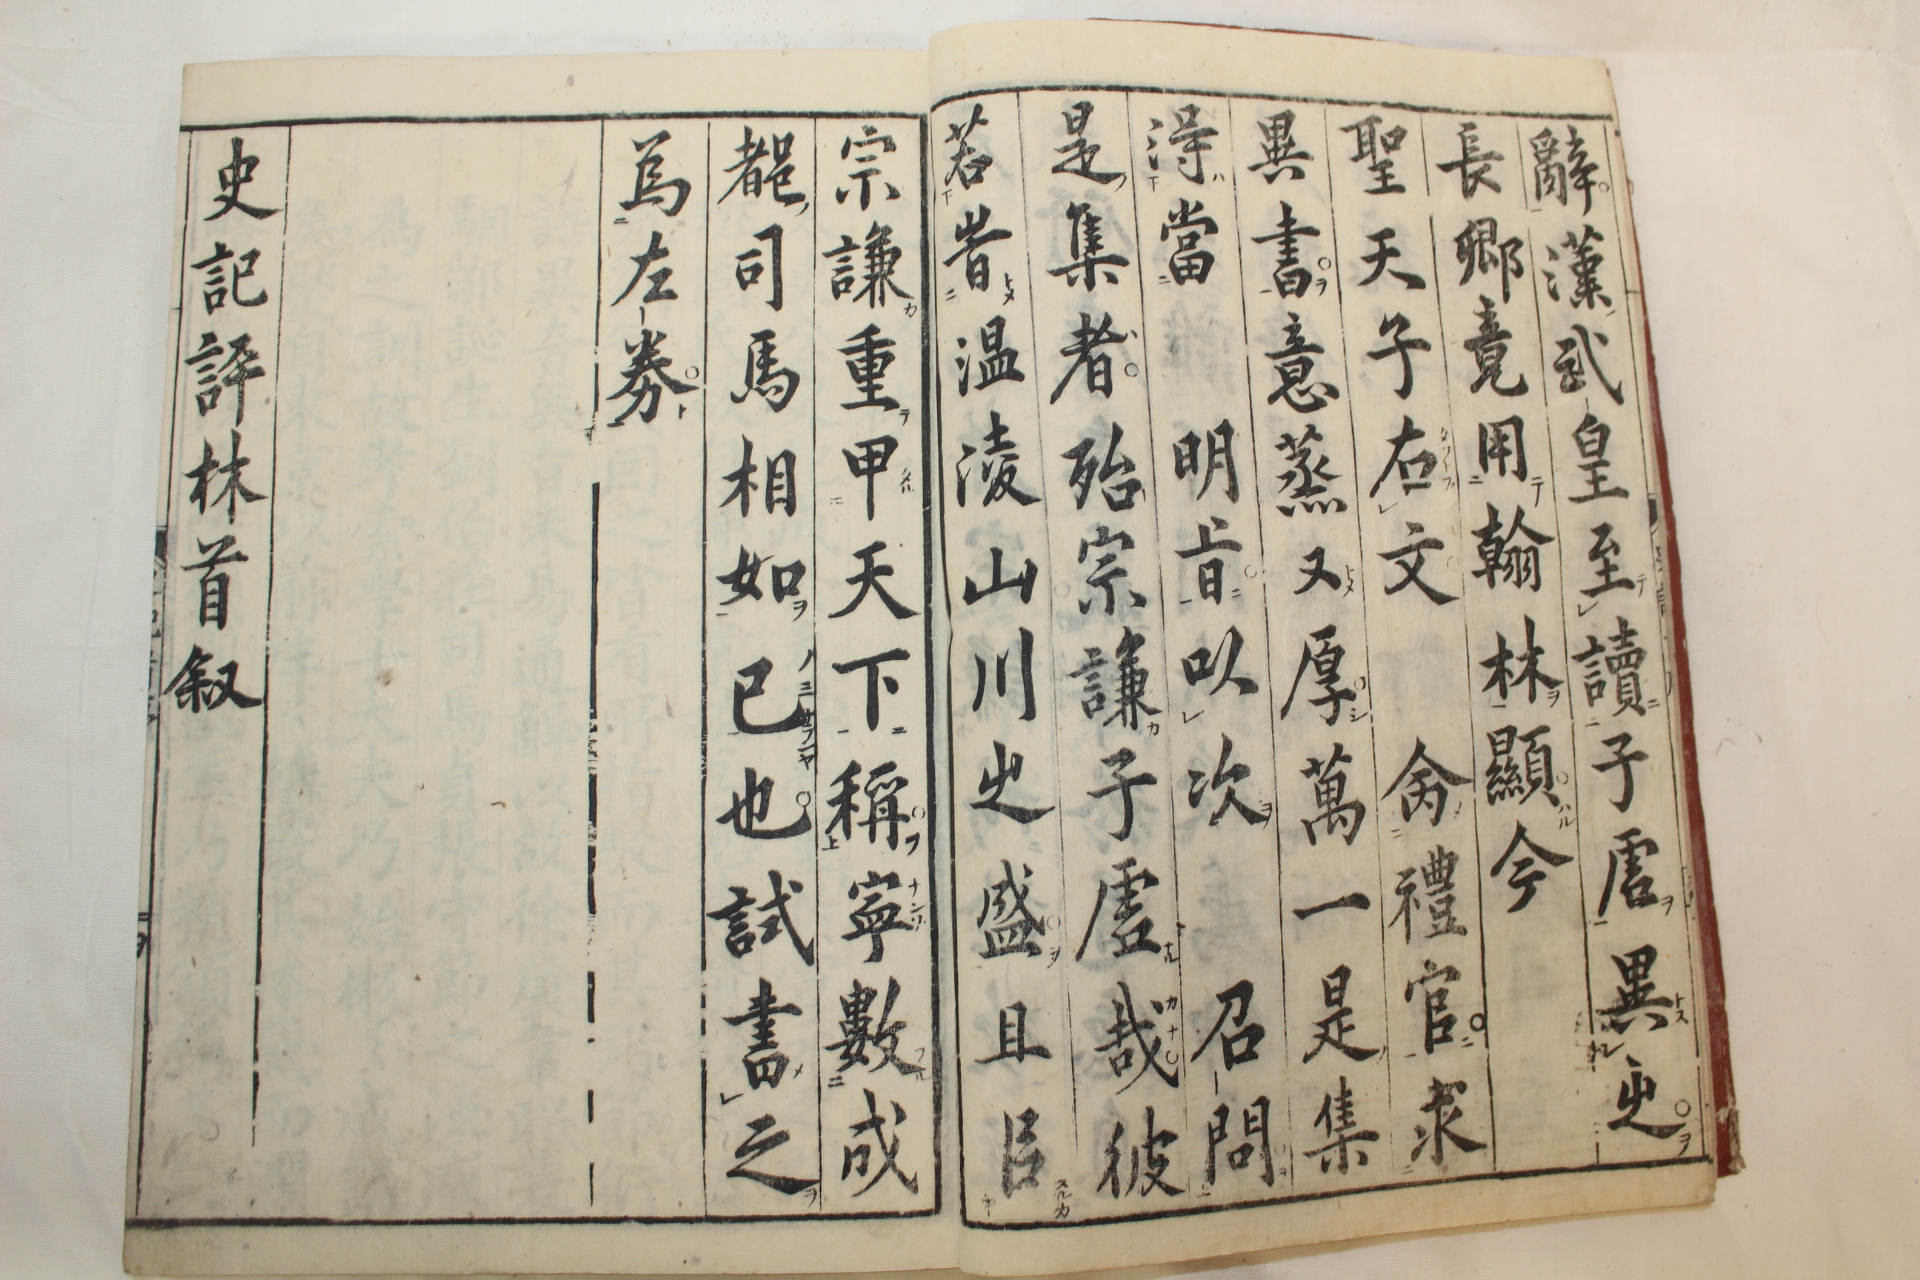 辭漢武皇至讀子虛異之
長卿竟用翰林顯今
聖天子右文　命禮官求
異書意蒸又厚萬一是集
得當　明旨以次　召問
是集者殆宗謙子虛哉彼
若昔溫陵山川之盛且臣
宗謙重甲天下稱寧數成
都司馬相如已也試書之
爲左券
史記評林首叙